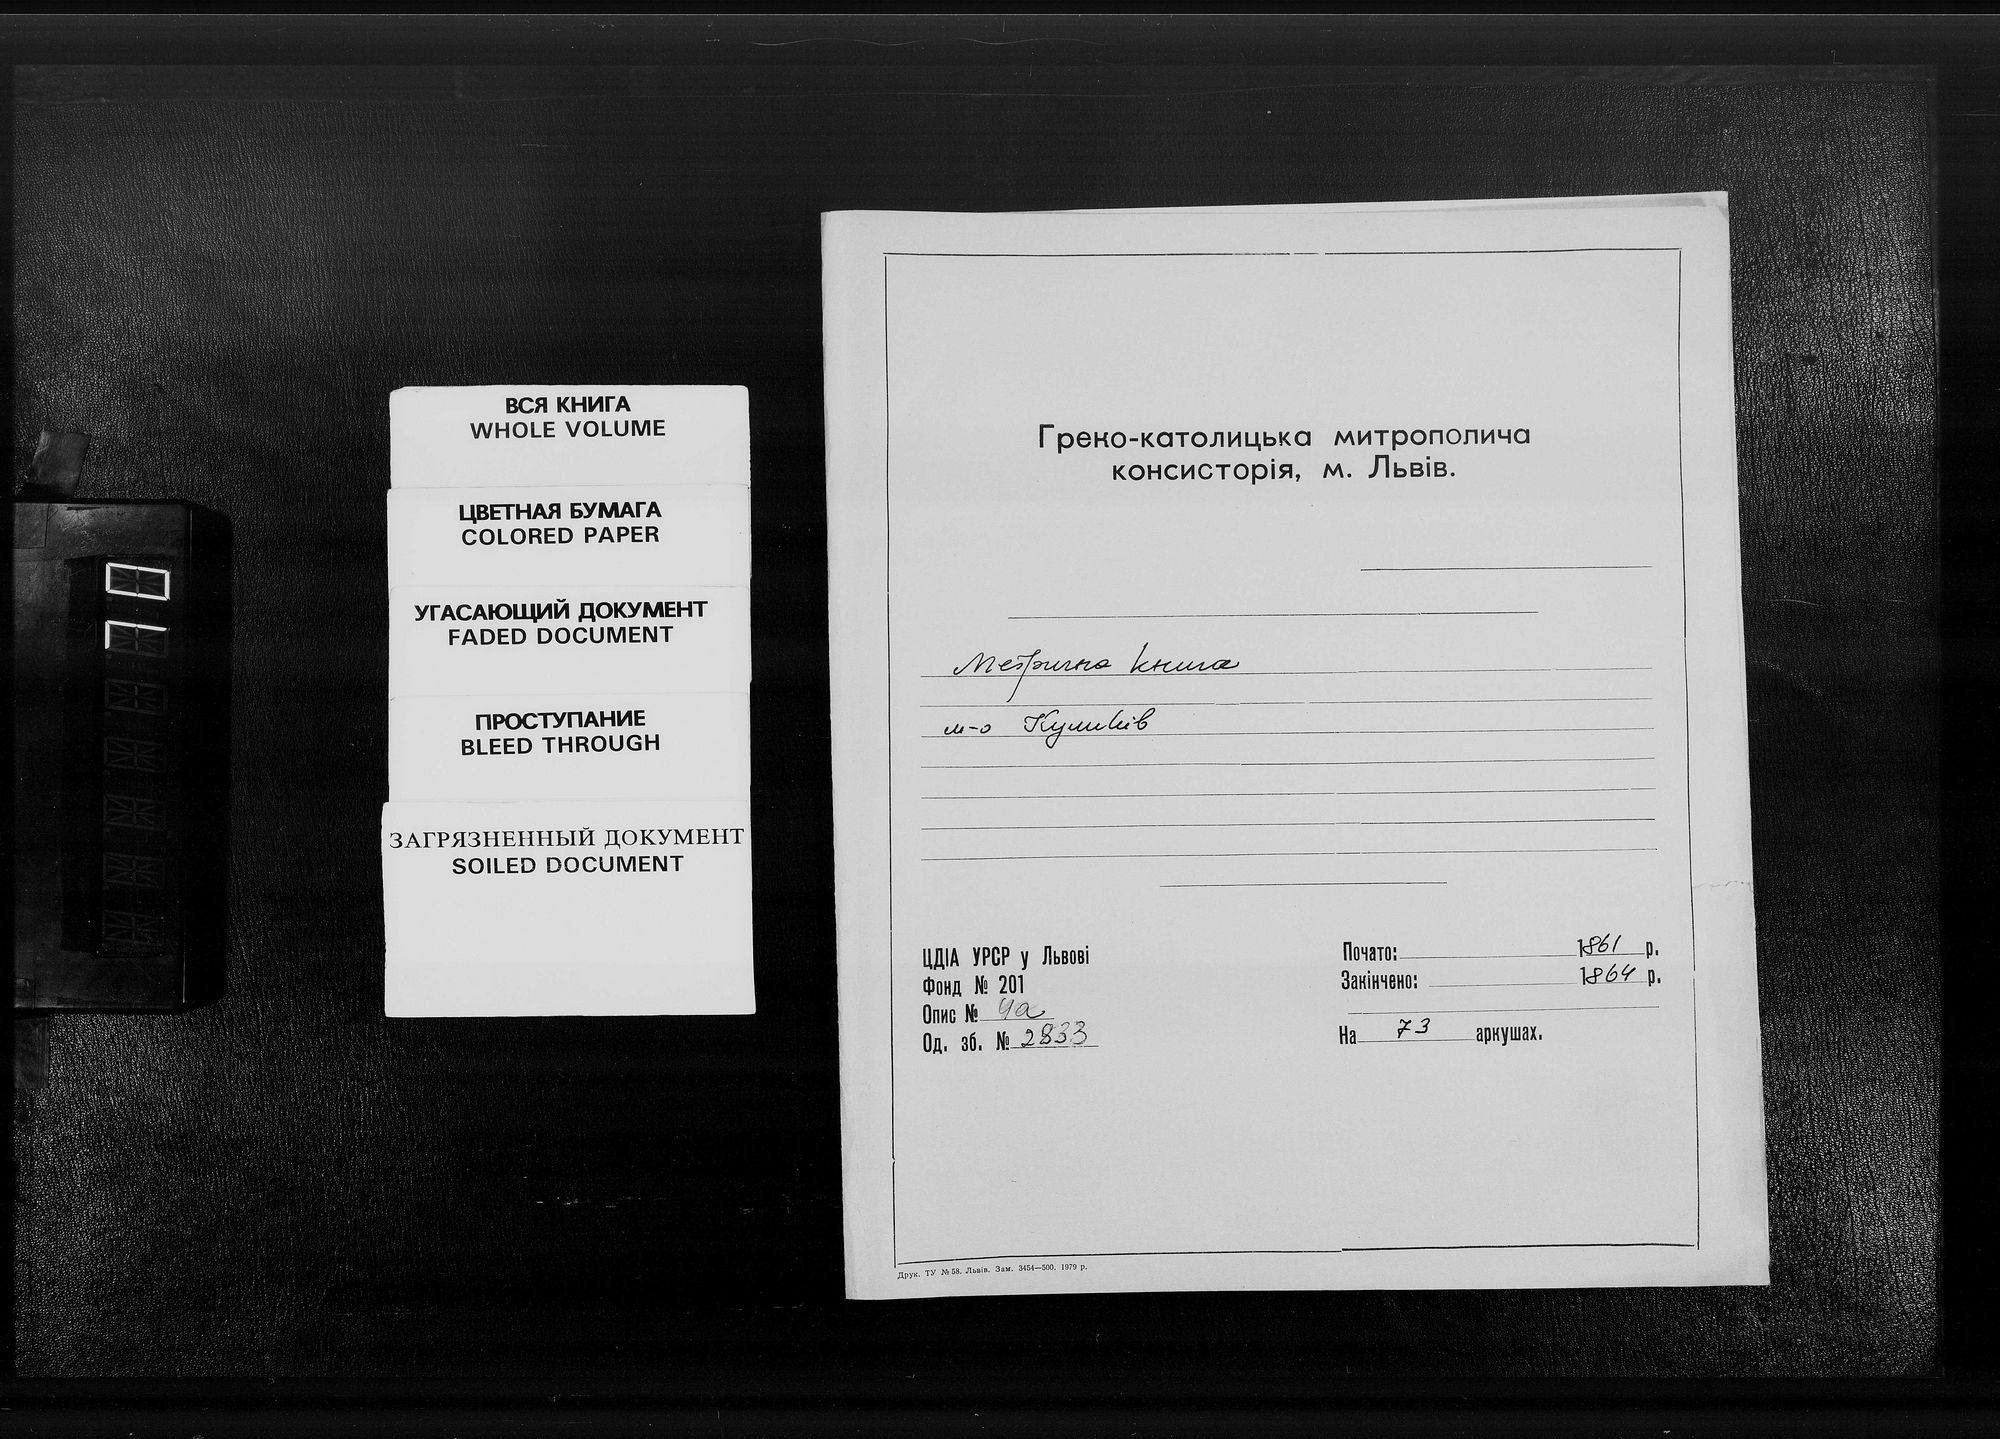 ВСЯ КНИГА
WHOLE VOLUME
ЦВЕТНАЯ БУМАГА
COLORED PAPER
УГАСАЮЩИЙ ДОКУМЕНТ
FADED DOCUMENT
ПРОСТУПАНИЕ
BLEED THROUGH
ЗАГРЯЗНЕННЫЙ ДОКУМЕНТ
SOILED DOCUMENT
70
Греко-католицька митрополича
консисторія, м. Львів.
Метрична книга
м-о Куликів
ЦДІА УРСР у Львові
Фонд № 201
Опис № 4а
Од. зб. № 2833
Почато: 1861 р.
Закінчено: 1864 р.
На 73 аркушах.
Друк. ТУ № 58. Львів. Зам. 3454—500. 1979 р.